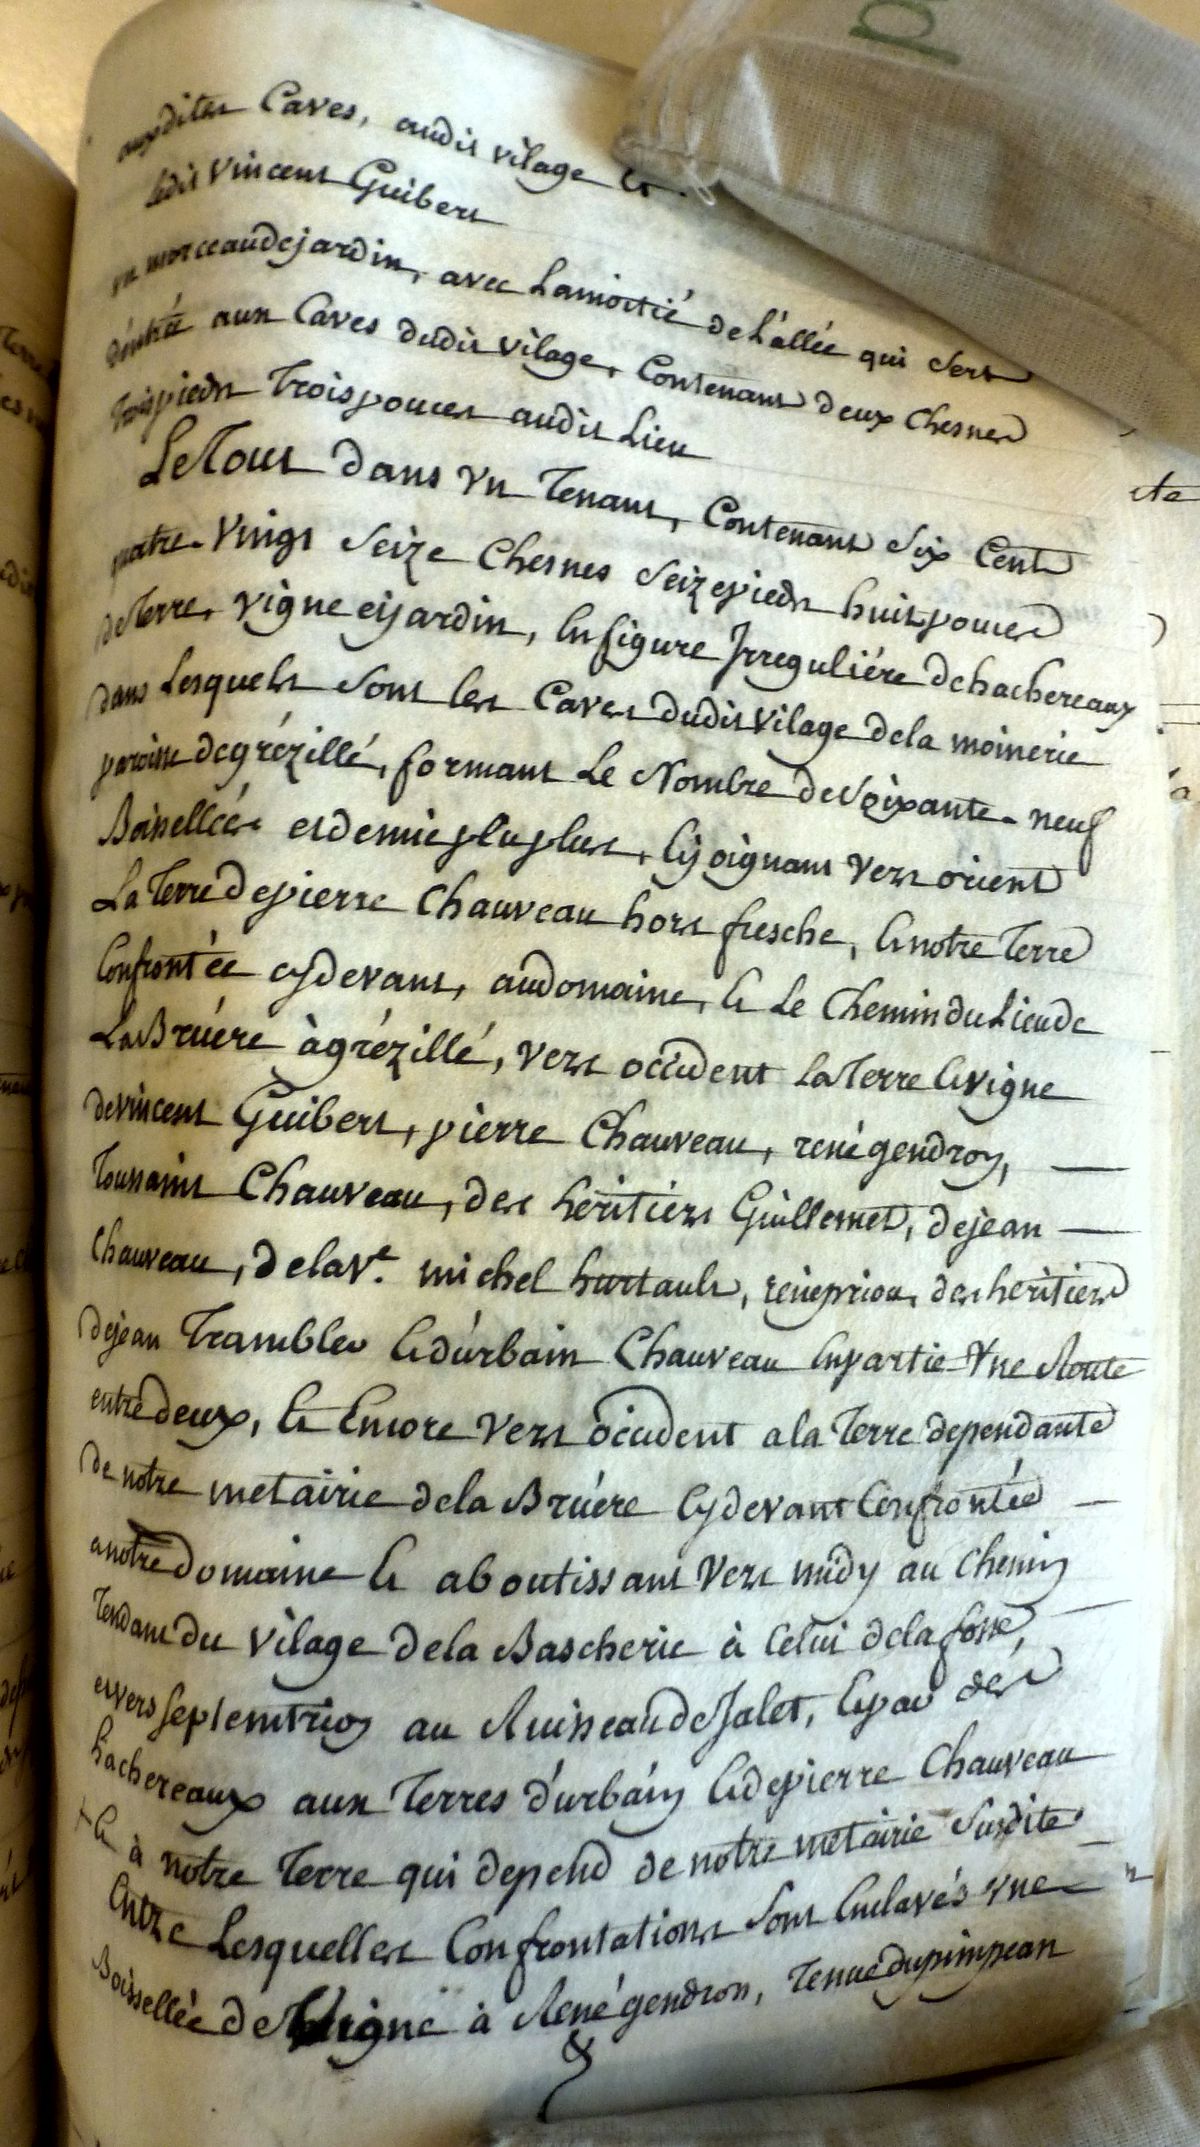 auxdites Caves, audit vilage &
ledit Vincent Guibert
un morceau de jardin, avec Lamoitié de L'allée qui sert
d'entrée aux Caves dudit vilage, Contenant deux Chesnes
Trois pieds Trois pouces audit Lieu
Le Tout dans Vn Tenant, Contenant Six Cent
quatre-Vingt Seize Chesnes Seize pieds huit pouces
de Terre, vigne et jardin, en figure Irreguliére de hachereaux
dans Lesquels Sont les Caves dudit Vilage dela moinerie
paroisse de grézillé, formant Le Nombre de Soixante-neuf
Boissellées et demie plus, joignant Vers orient
La Terre de pierre Chauveau hors fresche, & notre Terre
Confrontée cy devant, au domaine, & Le Chemin du Lieu de
La Bruére à grézillé, Vers occident La Terre & vigne
de vincent Guibert, pierre Chauveau, rené gendron,
Toussaint Chauveau, des héritiers Guillemet, de jean
Chauveau, dela Ve. michel hurtault, rené priou, des heritiers
de jean Tramblez & d'urbain Chauveau en partie Vne Route
entre deux, & Encore Vers occident a la Terre dependante
de notre metairie dela Bruére Cy devant Confrontée
a notre domaine & aboutissant Vers midy au Chemin
Tendant du Vilage dela Bascherie à Celui dela fosse,
et vers septentrion au Ruisseau de Jalet, & par des
hachereaux aux Terres d'urbain & de pierre Chauveau
& à notre Terre qui depend de notre metairie Susdite
Entre Lesquelles Confrontations Sont Enclavés vne
Boissellée de Vigne à René gendron, Tenue du pimpean
ete